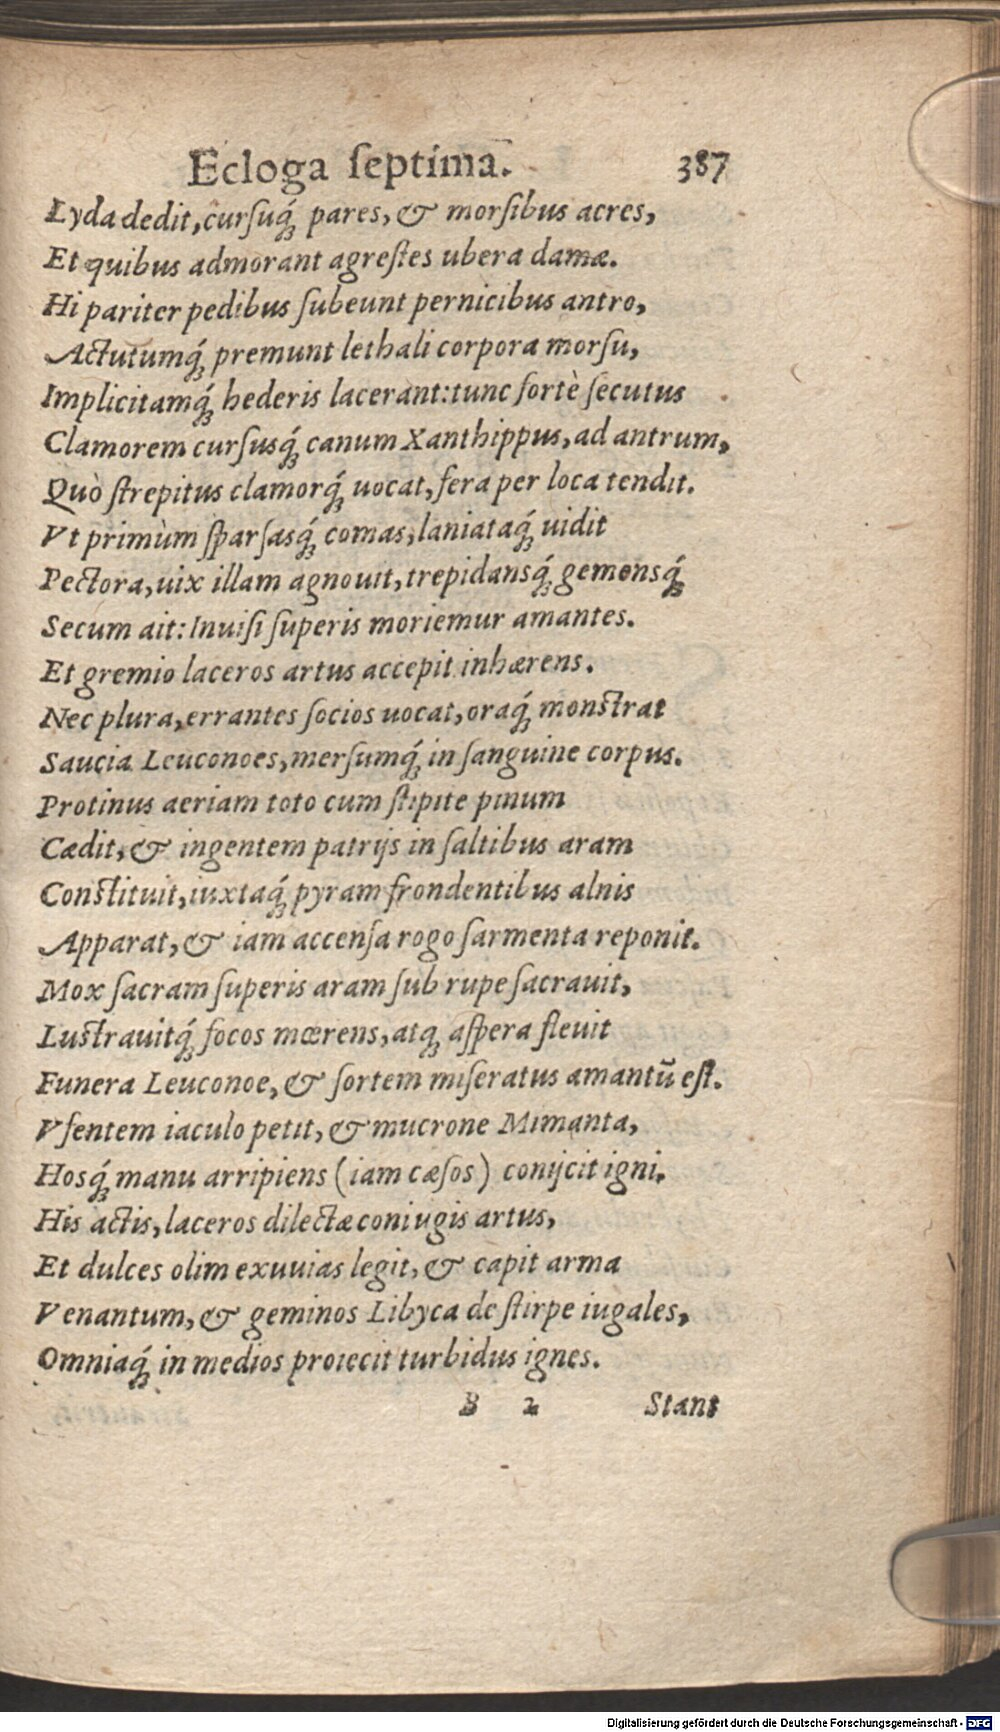 Ecloga ſeptima. 387
Lyda dedit, curſuq́; pares, & morſibus acres,
Et quibus admorant agreſtes ubera damæ.
Hi pariter pedibus ſubeunt pernicibus antro,
Actutumq́; premunt lethali corpora morſu,
Implicitamq́; hederis lacerant: tunc fortè ſecutus
Clamorem curſusq́; canum Xanthippus, ad antrum,
Quò ſtrepitus clamorq́; uocat, fera per loca tendit.
Vt primùm ſparſasq́; comas, laniataq́; uidit
Pectora, uix illam agnouit, trepidansq́; gemensq́;
Secum ait: Inuiſi ſuperis moriemur amantes.
Et gremio laceros artus accepit inhærens.
Nec plura, errantes ſocios uocat, oraq́; monſtrat
Saucia Leuconoes, merſumq́; in ſanguine corpus.
Protinus aeriam toto cum ſtipite pinum
Cædit, & ingentem patrijs in ſaltibus aram
Conſtituit, iuxtaq́; pyram frondentibus alnis
Apparat, & iam accenſa rogo ſarmenta reponit.
Mox ſacram ſuperis aram ſub rupe ſacrauit,
Luſtrauitq́; focos mœrens, atq; aſpera fleuit
Funera Leuconoe, & ſortem miſeratus amantũ eſt.
Vſentem iaculo petit, & mucrone Mimanta,
Hosq́; manu arripiens (iam cæſos) conijcit igni.
His actis, laceros dilectæ coniugis artus,
Et dulces olim exuuias legit, & capit arma
Venantum, & geminos Libyca de ſtirpe iugales,
Omniaq́; in medios proiecit turbidus ignes.
B 2 Stant
Digitalisierung gefördert durch die Deutsche Forschungsgemeinschaft - DFG